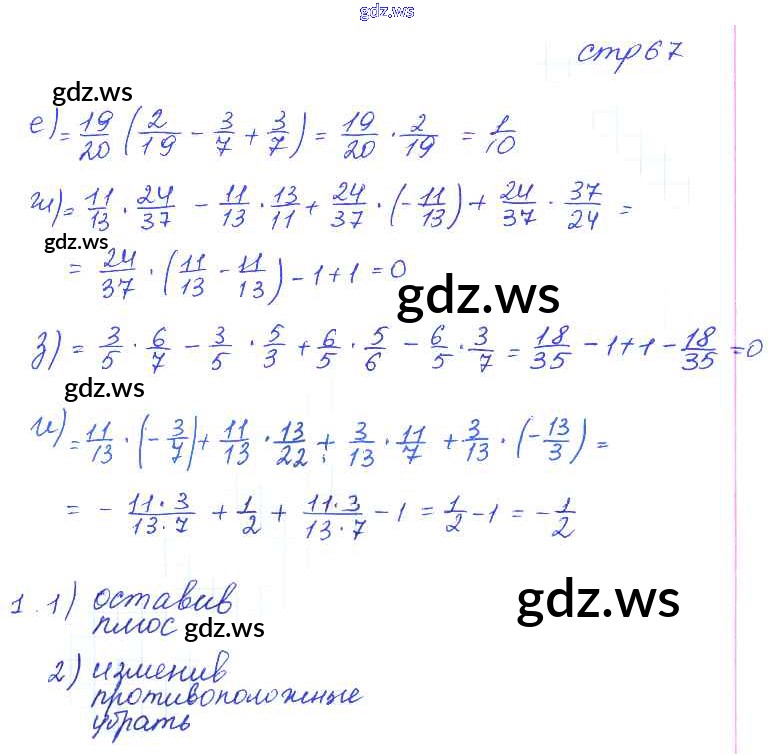 gdz.ws
стр 67
gdz.ws
е) = 19/20 (2/19 - 3/7 + 3/7) = 19/20 · 2/19 = 1/10
ж) = 11/13 · 24/37 - 11/13 · 13/11 + 24/37 · (-11/13) + 24/37 · 37/24 =
gdz.ws
= 24/37 · (11/13 - 11/13) - 1 + 1 = 0
gdz.ws
з) = 3/5 · 6/7 - 3/5 · 5/3 + 6/5 · 5/6 - 6/5 · 3/7 = 18/35 - 1 + 1 - 18/35 = 0
gdz.ws
и) = 11/13 · (-3/7) + 11/13 · 13/22 + 3/13 · 11/7 + 3/13 · (-13/3) =
= - 11·3/13·7 + 1/2 + 11·3/13·7 - 1 = 1/2 - 1 = -1/2
1. 1) оставив
плюс
gdz.ws
gdz.ws
2) изменив
противоположные
убрать